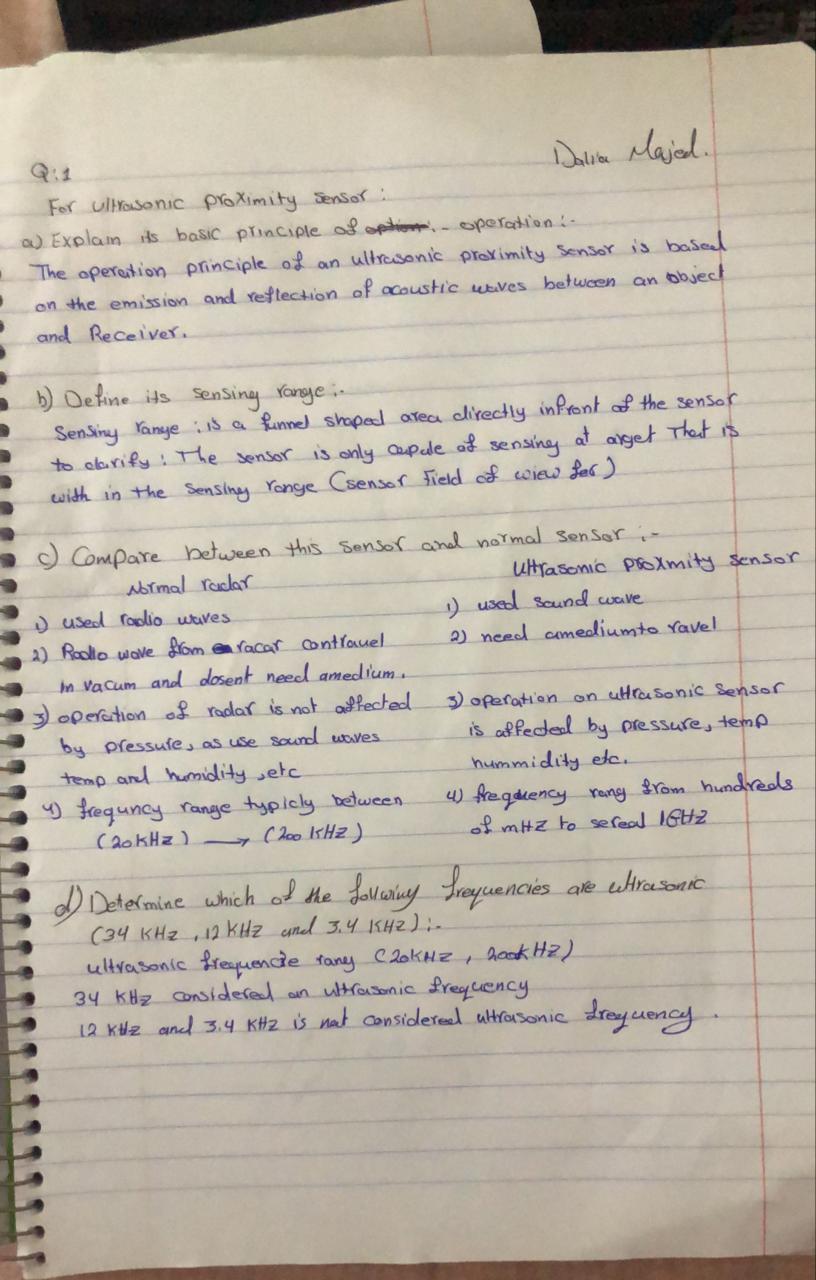 Dalia Majed.
Q:1
For ultrasonic proximity sensor :
a) Explain its basic principle of option:- operation :-
The operation principle of an ultrasonic proximity sensor is based
on the emission and reflection of acoustic waves between an object
and Receiver.
b) Define its sensing range :-
Sensing range : is a funnel shaped area directly infront of the sensor
to clarify : The sensor is only capule of sensing at arget That is
with in the sensing range (sensor Field of wiew for)
c) Compare between this sensor and normal sensor :-
Normal radar
1) used radio waves
2) Radio wave from racar contravel
in vacum and dosent need amedium.
3) operation of radar is not affected
by pressure, as use sound waves
temp and humidity , etc
4) frequncy range typicly between
(20 KHz) → (200 KHz)
Ultrasonic proxmity sensor
1) used sound wave
2) need amediumto ravel
3) operation on ultrasonic sensor
is affected by pressure, temp
hummidity etc.
4) frequency rang from hundreds
of mHZ to sereal 1GHZ
d) Determine which of the following frequencies are ultrasonic
(34 KHz , 12 KHz and 3.4 KHz) :-
ultrasonic frequencie rang (20KHz , 200KHz)
34 KHz considered an ultrasonic frequency
12 KHz and 3.4 KHz is not considered ultrasonic frequency .